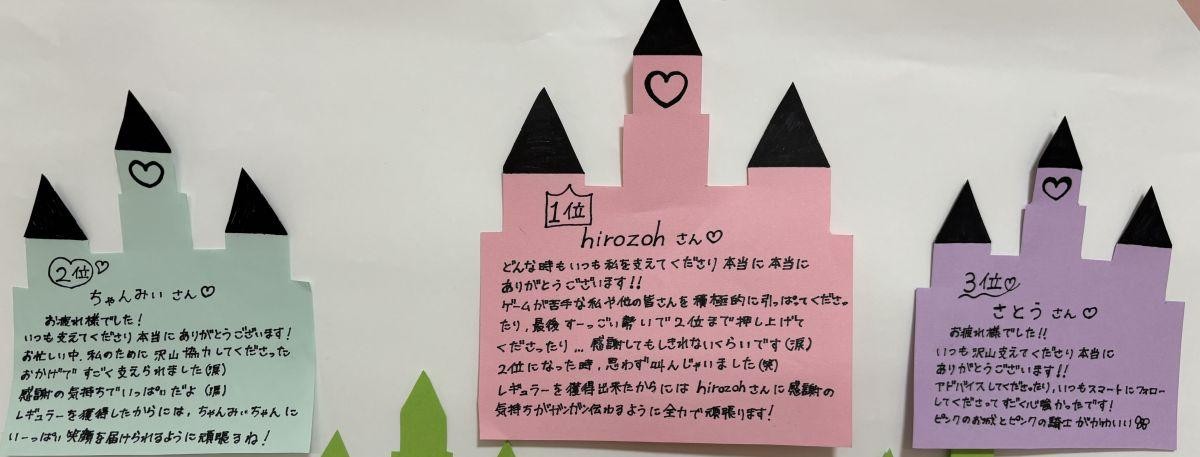 2位
ちゃんみい さん♡
お疲れ様でした!
いつも支えてくださり本当にありがとうございます!
お忙しい中、私のために沢山協力してくださった
おかげですごく支えられました(涙)
感謝の気持ちでいっぱいだよ(涙)
レギュラーを獲得したからには、ちゃんみいちゃんに
いーっぱい笑顔を届けられるように頑張るね!
1位
hirozoh さん♡
どんな時もいつも私を支えてくださり本当に本当に
ありがとうございます!!
ゲームが苦手な私や他の皆さんを積極的に引っぱってくださっ
たり、最後すーっごい勢いで2位まで押し上げて
くださったり...感謝してもしきれないくらいです(涙)
2位になった時、思わず叫んじゃいました(笑)
レギュラーを獲得出来たからには hirozohさんに感謝の
気持ちがガンガン伝わるように全力で頑張ります!
3位♡
さとう さん♡
お疲れ様でした!!
いつも沢山支えてくださり本当に
ありがとうございます!!
アドバイスしてくださったり、いつもスマートにフォロー
してくださってすごく心強かったです!
ピンクのお城とピンクの騎士がかわいい